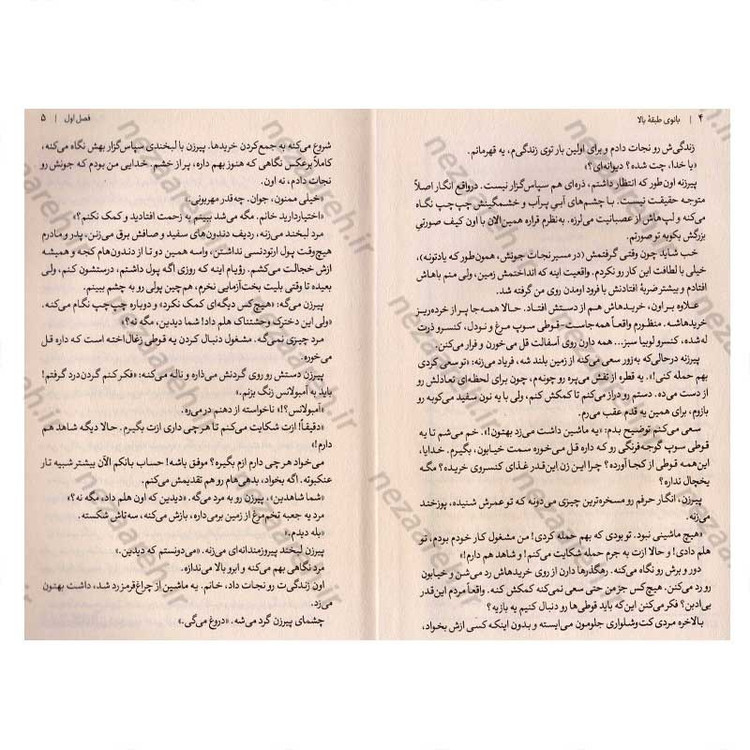 ۴ | بانوی طبقهٔ بالا
زندگی‌ش رو نجات دادم و برای اولین بار توی زندگی‌م، یه قهرمانم.
«یا خدا، چت شده؟ دیوانه‌ای؟»
پیرزنه اون‌طور که انتظار داشتم، ذره‌ای هم سپاس‌گزار نیست. درواقع انگار اصلاً
متوجه حقیقت نیست. با چشم‌های آبی پرآب و خشمگینش چپ‌چپ نگاه
می‌کنه و لپ‌هاش از عصبانیت می‌لرزه. به‌نظرم قراره همین‌الان با اون کیف صورتیِ
بزرگش بکوبه تو صورتم.
خب شاید چون وقتی گرفتمش (در مسیر نجات جونش، همون‌طور که یادتونه)،
خیلی با لطافت این کار رو نکردم. واقعیت اینه که انداختمش زمین، ولی منم باهاش
افتادم و بیشتر ضربهٔ افتادنش با فرود اومدن روی من گرفته شد.
علاوه بر اون، خریدهاش هم از دستش افتاد. حالا همه‌جا پر از خرده‌ریز
خریدهاشه. منظورم واقعاً همه‌جاست-قوطی سوپ مرغ و نودل، کنسرو ذرت
له‌شده، کنسرو لوبیا سبز... همه دارن روی آسفالت قل می‌خورن و فرار می‌کنن.
پیرزنه درحالی‌که به‌زور سعی می‌کنه از زمین بلند شه، فریاد می‌زنه: «تو سعی کردی
بهم حمله کنی!». یه قطره از تفش می‌پره رو چونه‌م، چون برای لحظه‌ای تعادلش رو
از دست می‌ده. دستم رو دراز می‌کنم تا کمکش کنم، ولی با یه نون سفید می‌کوبه رو
بازوم، برای همین یه قدم عقب می‌رم.
سعی می‌کنم توضیح بدم: «یه ماشین داشت می‌زد بهتون!». خم می‌شم تا یه
قوطی سوپ گوجه‌فرنگی رو که داره قل می‌خوره سمت خیابون، بگیرم. خدایا،
این‌همه قوطی از کجا آورده؟ چرا این زن این‌قدر غذای کنسروی خریده؟ مگه
یخچال نداره؟
پیرزن، انگار حرفم رو مسخره‌ترین چیزی می‌دونه که تو عمرش شنیده، پوزخند
می‌زنه.
«هیچ ماشینی نبود. تو بودی که بهم حمله کردی! من مشغول کار خودم بودم، تو
هلم دادی! و حالا ازت به جرم حمله شکایت می‌کنم! و شاهد هم دارم!»
دور و برش رو نگاه می‌کنه. رهگذرها دارن از روی خریدهاش رد می‌شن و خیابون
رو رد می‌کنن. هیچ‌کس جز من حتی سعی نمی‌کنه کمکش کنه. واقعاً مردم این‌قدر
بی‌ادبن؟ فکر می‌کنن این‌که باید قوطی‌ها رو دنبال کنیم یه بازیه؟
بالاخره مردی کت‌وشلواری جلومون می‌ایسته و بدون اینکه کسی ازش بخواد،
فصل اول | ۵
شروع می‌کنه به جمع‌کردن خریدها. پیرزن با لبخندی سپاس‌گزار بهش نگاه می‌کنه،
کاملاً برعکس نگاهی که هنوز بهم داره، پر از خشم. خدایی من بودم که جونش رو
نجات دادم، نه اون.
«خیلی ممنون، جوان. چه‌قدر مهربونی.»
«اختیاردارید خانم. مگه می‌شد ببینم به زحمت افتادید و کمک نکنم؟»
مرد لبخند می‌زنه، ردیف دندون‌های سفید و صافش برق می‌زنن. پدر و مادرم
هیچ‌وقت پول ارتودنسی نداشتن، واسه همین دو تا از دندون‌هام کجه و همیشه
ازش خجالت می‌کشم. رؤیام اینه که روزی اگه پول داشتم، درستشون کنم، ولی
بعیده تا وقتی بلیت بخت‌آزمایی نخرم، هم‌چین پولی رو به چشم ببینم.
پیرزن می‌گه: «هیچ‌کس دیگه‌ای کمک نکرد» و دوباره چپ‌چپ نگام می‌کنه.
«ولی این دخترک وحشتناک هلم داد! شما دیدین، مگه نه؟»
مرد چیزی نمی‌گه. مشغول دنبال کردن یه قوطی زغال‌اخته است که داره قل
می‌خوره.
پیرزن دستش رو روی گردنش می‌ذاره و ناله می‌کنه: «فکر کنم گردن‌درد گرفتم!
باید به آمبولانس زنگ بزنم.»
«آمبولانس؟!» ناخواسته از دهنم در می‌ره.
«دقیقاً! ازت شکایت می‌کنم تا هر چی داری ازت بگیرم. حالا دیگه شاهد هم
دارم!»
می‌خواد هر چی دارم ازم بگیره؟ موفق باشه! حساب بانکم الان بیشتر شبیه تار
عنکبوته. اگه بخواد، بدهی‌هام رو هم تقدیمش می‌کنم.
«شما شاهدین». پیرزن رو به مرد می‌گه. «دیدین که اون هلم داد، مگه نه؟»
مرد یه جعبه تخم‌مرغ از زمین برمی‌داره، بازش می‌کنه، سه‌تاش شکسته.
«بله دیدم.»
پیرزن لبخند پیروزمندانه‌ای می‌زنه. «می‌دونستم که دیدین.»
مرد نگاهی بهم می‌کنه و ابرو بالا می‌ندازه.
اون زندگی‌ت رو نجات داد، خانم. یه ماشین از چراغ‌قرمز رد شد، داشت بهتون
می‌زد.
چشمای پیرزن گرد می‌شه. «دروغ می‌گی.»
nezaareh.ir